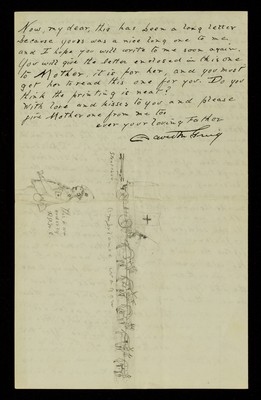 Now, my dear, this has been a long letter
because yours was a nice long one to me
and I hope you will write to me soon again.
You will give the letter enclosed in this one
to Mother, it is for her, and you must
get her to read this one for you. Do you
think the printing is neat?
With love and kisses to you and please
give Mother one from me too
ever your loving Father